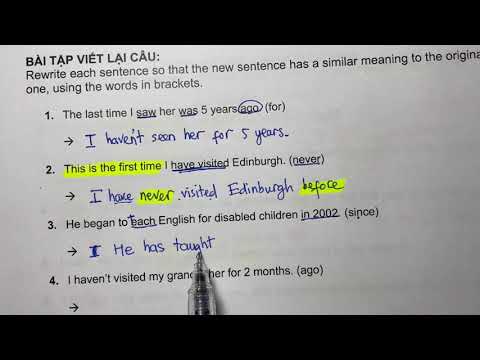 BÀI TẬP VIẾT LẠI CÂU:
Rewrite each sentence so that the new sentence has a similar meaning to the origina
one, using the words in brackets.
1. The last time I saw her was 5 years ago (for)
→ I haven't seen her for 5 years.
2. This is the first time I have visited Edinburgh. (never)
→ I have never visited Edinburgh before
3. He began to teach English for disabled children in 2002. (since)
→ He has taught
4. I haven't visited my for 2 months. (ago)
→